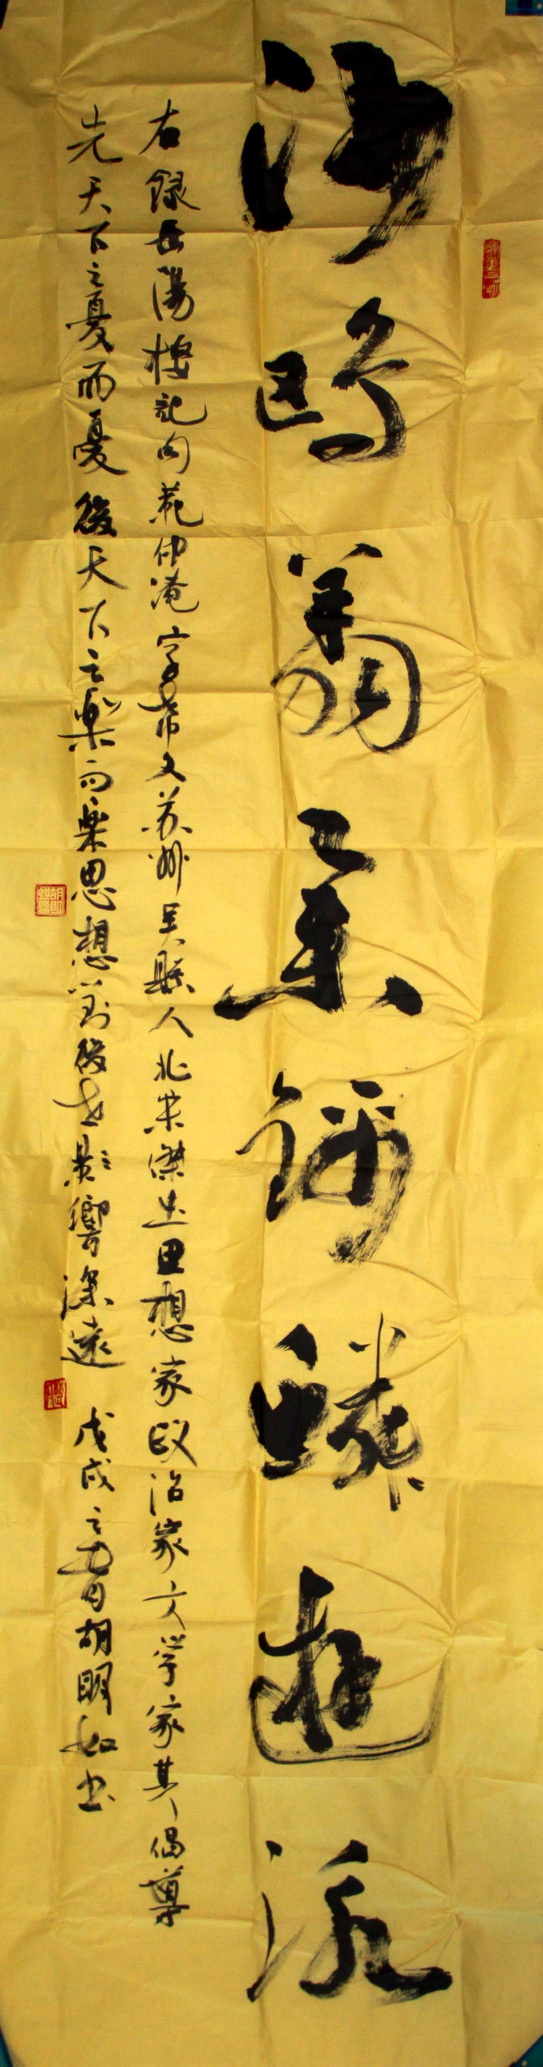 沙鸥翔集锦鳞遊泳
右録岳陽樓記句范仲淹字希文苏州吴縣人北宋傑出思想家政治家文学家其倡導
先天下之憂而憂後天下之樂而樂思想對後世影響深遠 戊戌之春月胡明如书